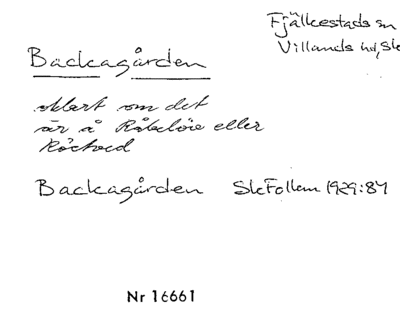 Fjälkestads sn
Villands hd, Sk
Backagården
oklart om det
är å Råbelöv eller
Röetved
Backagården SkFollem 1929:87
Nr 16661